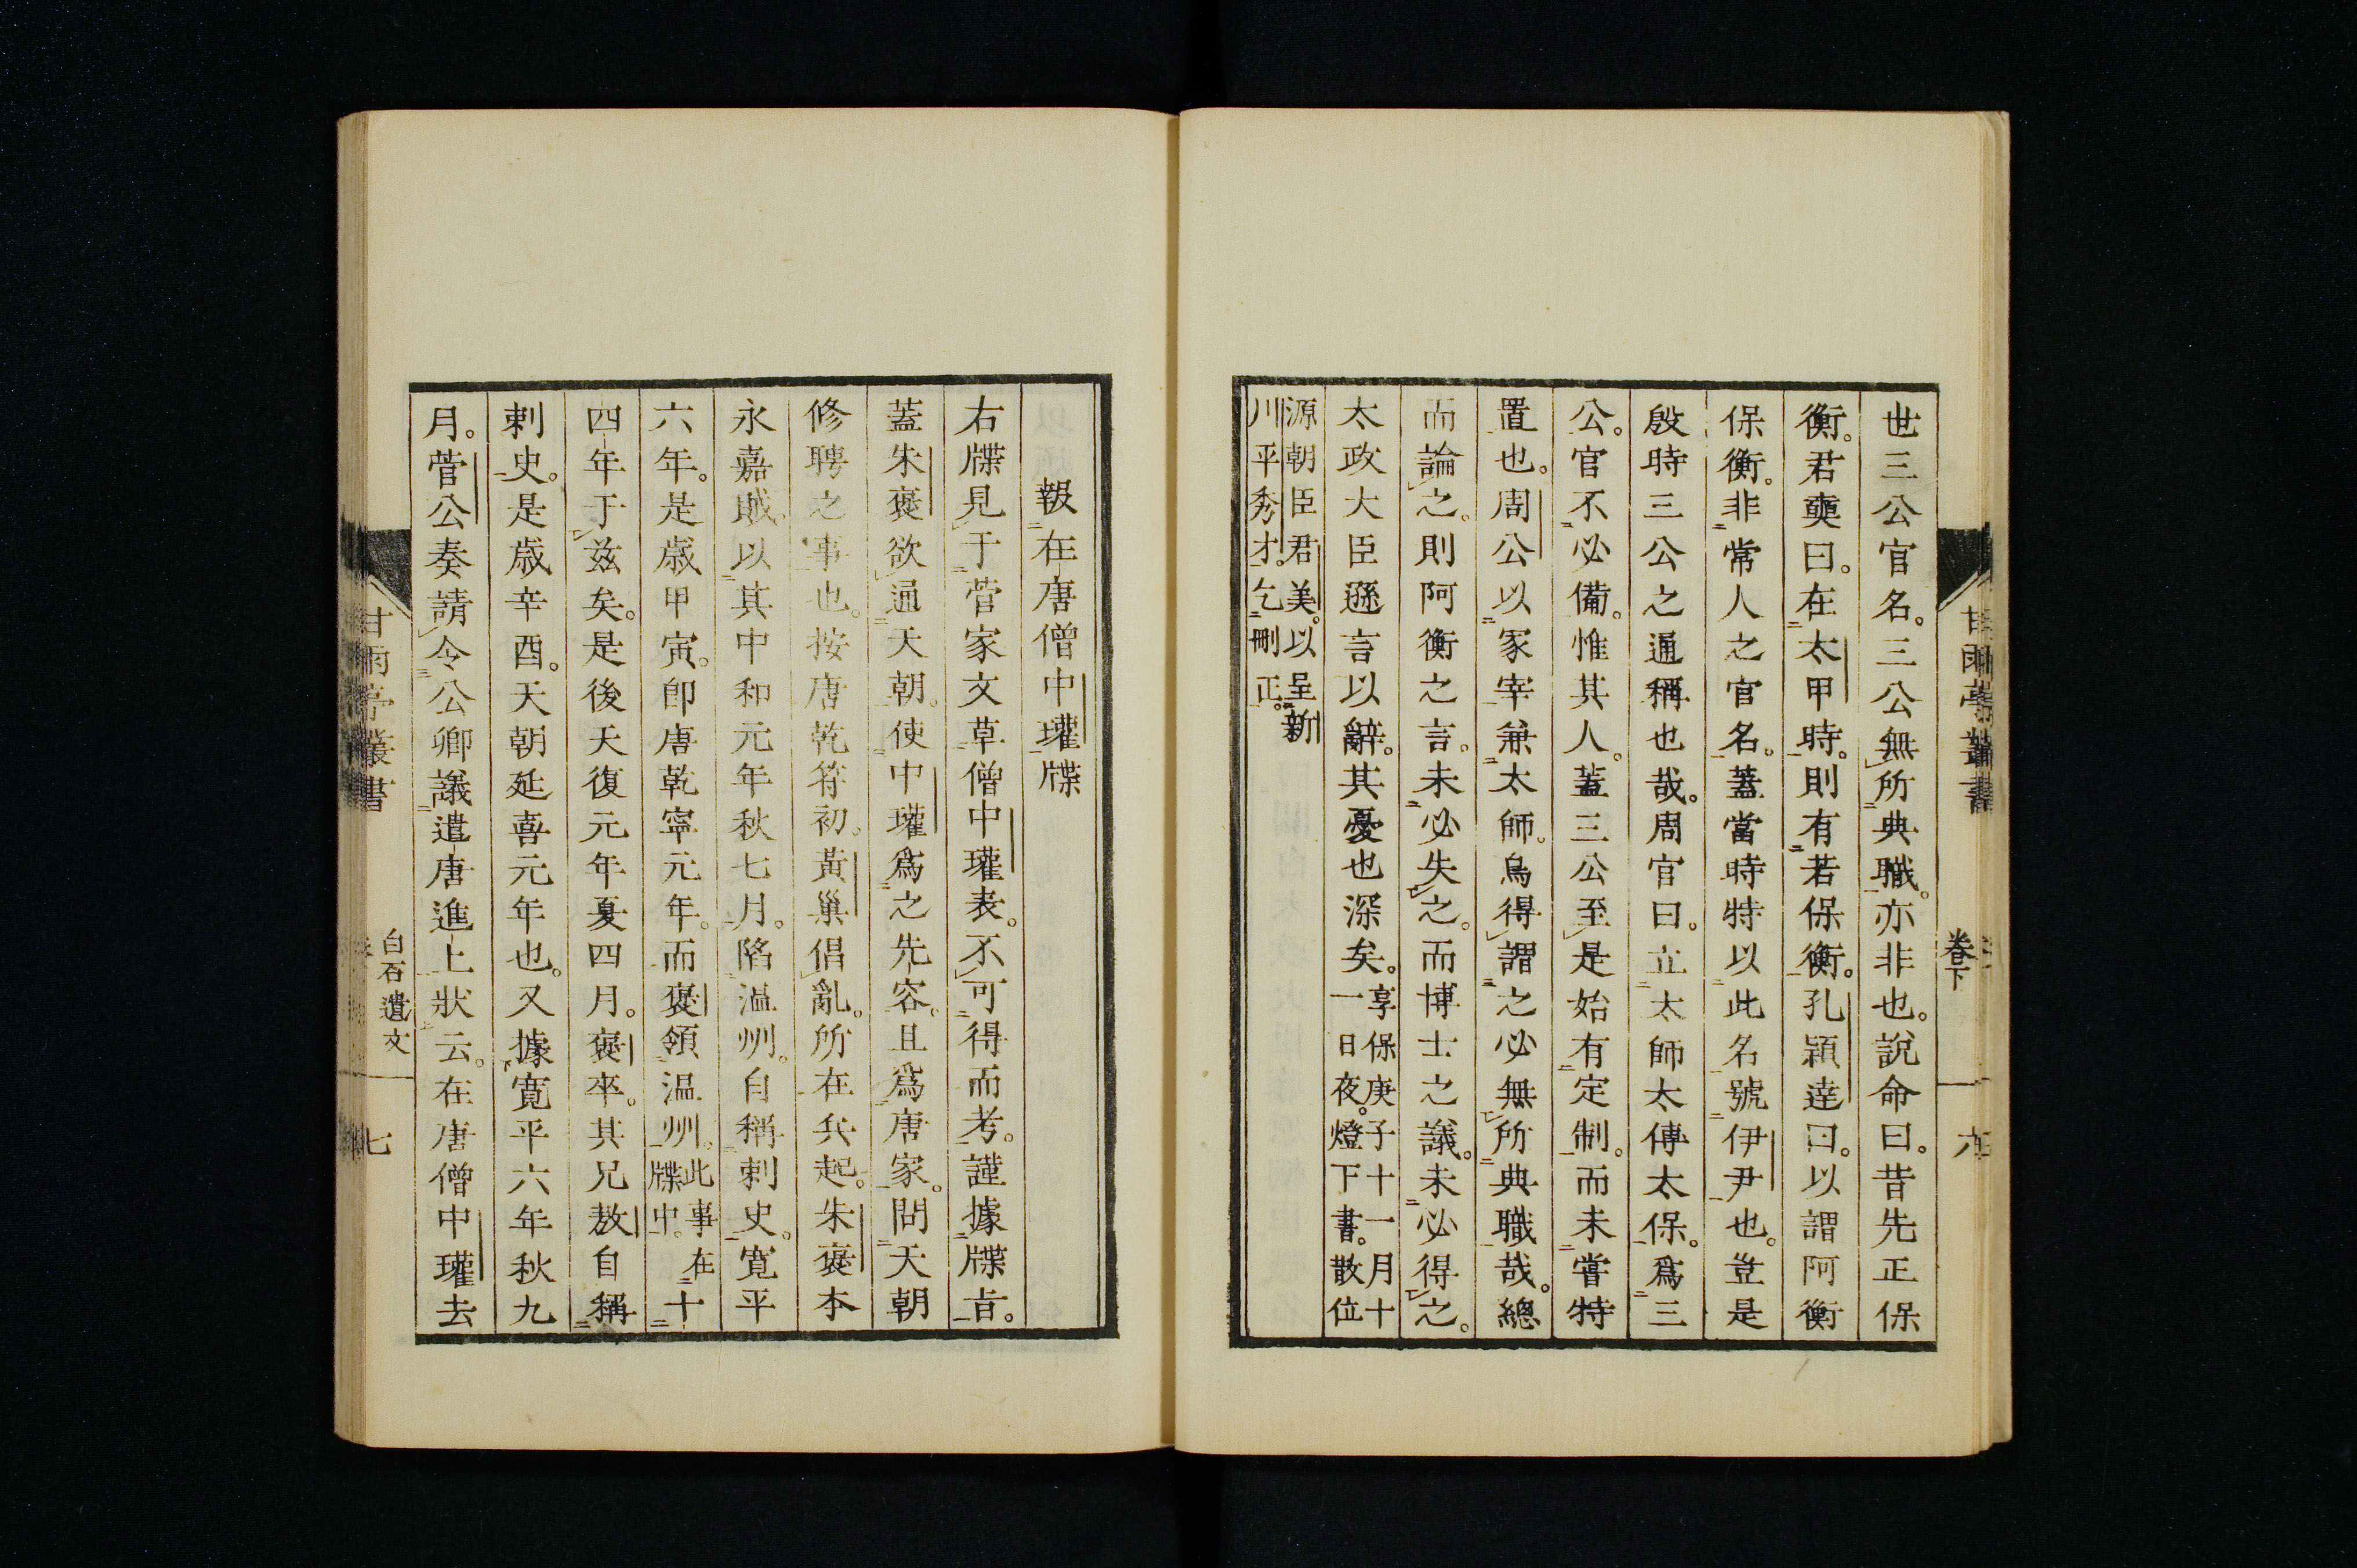 世三公官名。三公無所典職。亦非也。說命曰。昔先正保
衡。君奭曰。在太甲時。則有若保衡。孔穎達曰。以謂阿衡
保衡。非常人之官名。蓋當時特以此名號伊尹也。豈是
殷時三公之通稱也哉。周官曰。立太師太傅太保。爲三
公。官不必備。惟其人。蓋三公至是始有定制。而未嘗特
置也。周公以冢宰兼太師。烏得謂之必無所典職哉。總
而論之。則阿衡之言。未必失之。而博士之議。未必得之。
太政大臣遜言以辭。其憂也深矣。享保庚子十一月十
一日夜。燈下書。散位
源朝臣君美。以呈新
川平秀才。乞刪正。
甘雨亭叢書
卷下
六
報在唐僧中瓘牒
右牒見于菅家文草僧中瓘表。不可得而考。謹據牒旨。
蓋朱褒欲通天朝。使中瓘爲之先容。且爲唐家。問天朝
修聘之事也。按唐乾符初。黃巢倡亂。所在兵起。朱褒本
永嘉賊。以其中和元年秋七月。陷温州。自稱刺史。寬平
六年。是歲甲寅。即唐乾寧元年。而褒領温州。此事在
牒中。十
四年于兹矣。是後天復元年夏四月。褒卒。其兄敖自稱
刺史。是歲辛酉。天朝延喜元年也。又據寬平六年秋九
月。菅公奏請令公卿議遣唐進上狀云。在唐僧中瓘去
甘雨亭叢書
白石遺文
七